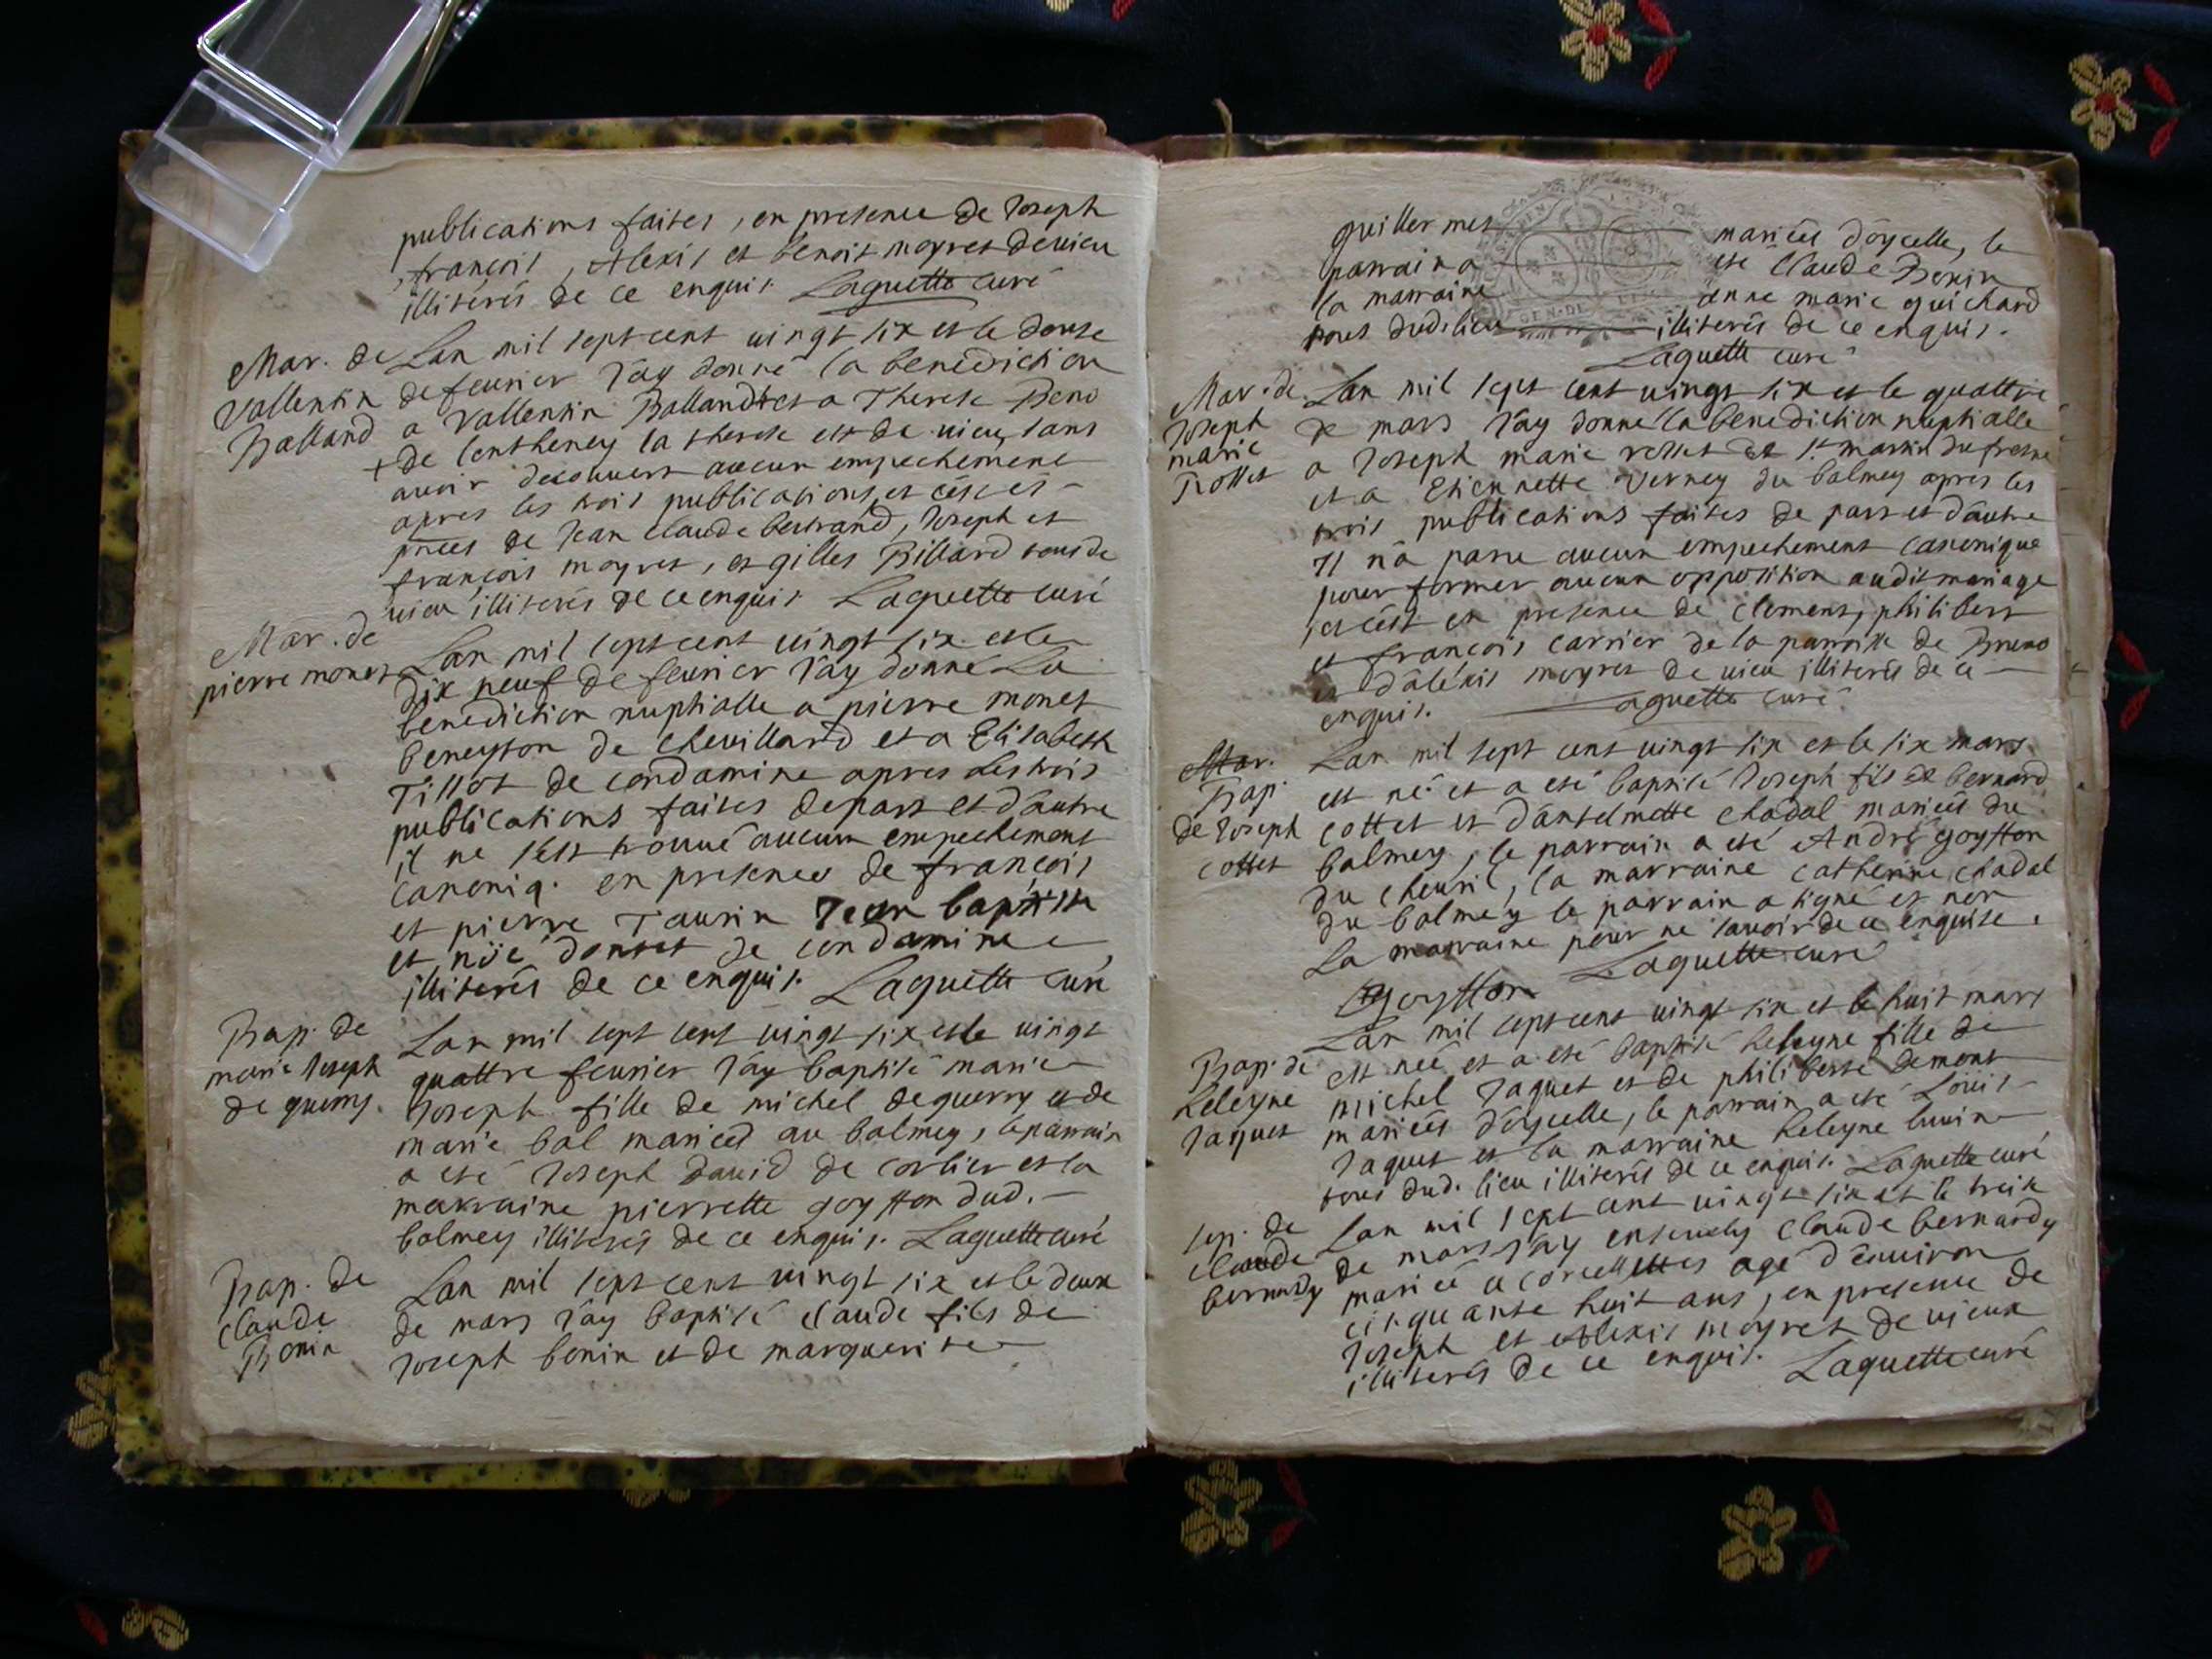 publications faites, en presence de Joseph
françois, Alexis et benoit moyret de vieu
illiterés de ce enquis. Laguette curé
Mar. de
Vallentin
Balland
Lan mil sept cent vingt six et le douse
de feurier J'ay donné la benediction
a Vallentin Balland et a Therese Beno
+ de lentheney la therese est de vieu, sans
auoir decouuert aucun empechement
apres les trois publications, et cést es
pnces de Jean Claude bertrand, Joseph et
françois moyret, et gilles Billard tous de
vieu illiterés de ce enquis Laguette curé
Mar. de
pierre monet
Lan mil sept cent vingt six et le
dix neuf de feurier J'ay donné La
benediction nuptialle a pierre monet
beneyton de chevillard et a Elisabeth
Tillot de condamine apres les trois
publications faites de part et d'autre
il ne s'est trouué aucun empechement
canoniq. en presence de françois
et pierre Taurin Jean baptiste
et condamine
illiterés de ce enquis. Laguette curé
Bap. de
marie Joseph
de guerry.
Lan mil sept cent vingt six et le vingt
quattre feurier J'ay baptisé marie
Joseph fille de michel deguerry et de
marie bal mariees au balmey, le parrain
a esté Joseph david de corlier et la
marraine pierrette goyffon dud.
balmey illiterés de ce enquis. Laguette curé
Bap. de
Claude
Bonin
Lan mil sept cent vingt six et le deux
de mars J'ay baptisé claude fils de
Joseph bonin et de marguerite
guillermet mariéés d'oycelle, le
parrain a esté Claude Bonin
la marraine anne marie guichard
tous dud. lieu illiterés de ce enquis.
Laguette curé
Mar. de
Joseph
marie
Rollet
Lan mil sept cent vingt six et le quattre
de mars J'ay donné la benediction nuptialle
a Joseph marie rollet de St. martin du fresne
et a Etiennette Verney du balmey apres les
trois publications faites de part et d'autre
Il n'a paru aucun empechement canonique
pour former aucun opposition audit mariage
et cést en presence de clement, philibert
et françois carrier de la parroisse de Breno
et d'aléxis moyret de vieu illiterés de ce
enquis. Laguette curé
Mar.
Bap.
de Joseph
cottet
Lan mil sept cent vingt six et le six mars
est né et a esté baptisé Joseph fils de bernard
cottet et d'antelmette chadal mariéés du
balmey, le parrain a esté André goyffon
du cheuril, la marraine catherine chadal
du balmey le parrain a signé et non
La marraine pour ne sauoir de ce enquise.
Goyffon Laguette curé
Bap. de
heleyne
Jaquet
Lan mil sept cent vingt six et le huit mars
est neé et a esté baptisé heleyne fille de
michel Jaquet et de philiberte demont
mariéés d'oycelle, le parrain a esté Loüis
Jaquet et la marraine heleyne
tous dud. lieu illiterés de ce enquis. Laguette curé
sep. de
claude
bernardy
Lan mil sept cent vingt six et le treise
de mars J'ay enseuely Claude bernardy
marié a corcellettes agé d'enuiron
cinquante huit ans, en presence de
Joseph et Alexis moyret de vieux
illiterés de ce enquis. Laguette curé